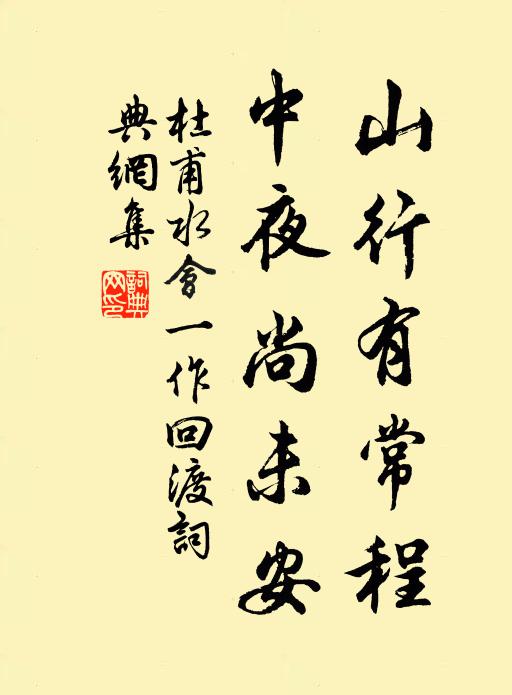 山行有常程
中夜尚未安
杜甫水會一作回渡詞
典網集
詞典網印